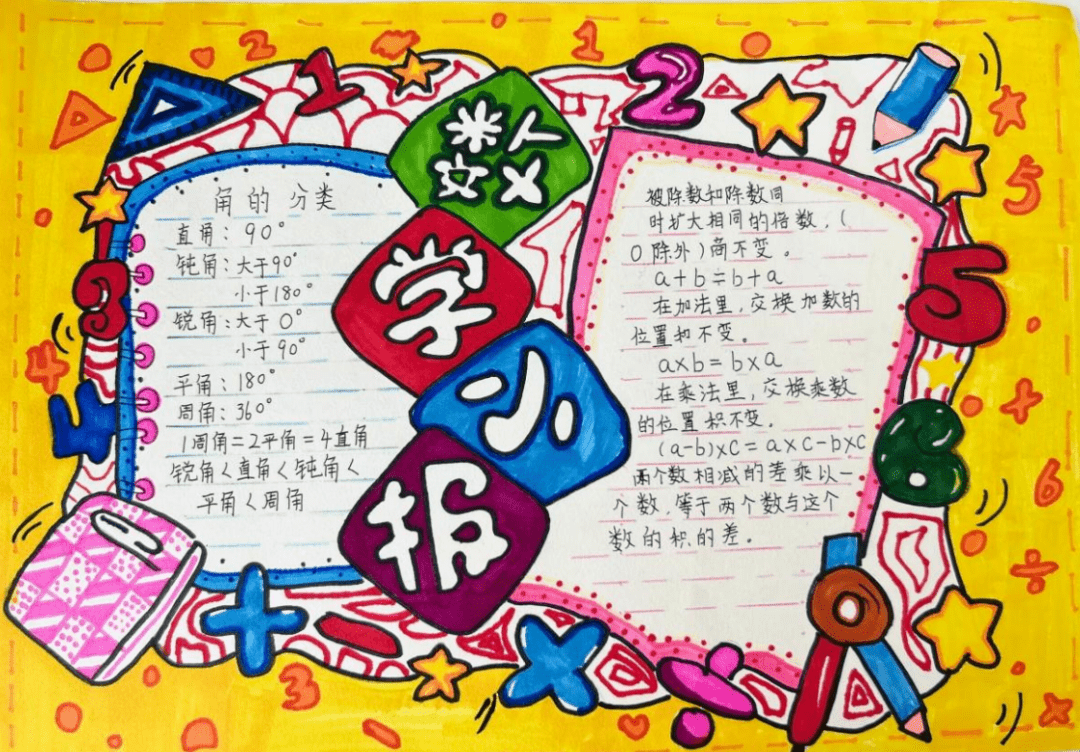 数
学
小
报
角的分类
直角：90°
钝角：大于90°
小于180°
锐角：大于0°
小于90°
平角：180°
周角：360°
1周角=2平角=4直角
锐角<直角<钝角<
平角<周角
被除数和除数同
时扩大相同的倍数，(
0除外)商不变。
a+b=b+a
在加法里，交换加数的
位置和不变。
a×b=b×a
在乘法里，交换乘数
的位置积不变。
(a-b)×c=a×c-b×c
两个数相减的差乘以一
个数，等于两个数与这个
数的积的差。
1
2
3
4
5
6
+
×
÷
2
1
5
4
+
6
÷
3
×